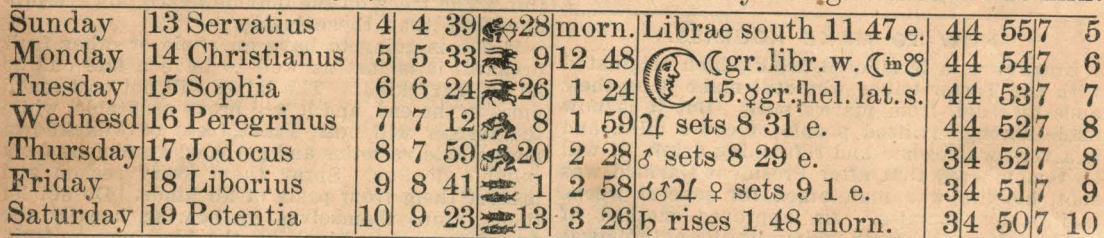 Sunday 13 Servatius 4 4 39 ♐ 28 morn. Librae south 11 47 e. 4 4 55 7 5
Monday 14 Christianus 5 5 33 ♑ 9 12 48 ☾ gr. libr. w. ☾ in ☋ 4 4 54 7 6
Tuesday 15 Sophia 6 6 24 ♑ 26 1 24 15. ☿ gr. hel. lat. s. 4 4 53 7 7
Wednesd 16 Peregrinus 7 7 12 ♒ 8 1 59 ♃ sets 8 31 e. 4 4 52 7 8
Thursday 17 Jodocus 8 7 59 ♒ 20 2 28 ♂ sets 8 29 e. 3 4 52 7 8
Friday 18 Liborius 9 8 41 ♓ 1 2 58 ☌ ♂ ♃ ♀ sets 9 1 e. 3 4 51 7 9
Saturday 19 Potentia 10 9 23 ♓ 13 3 26 ♄ rises 1 48 morn. 3 4 50 7 10